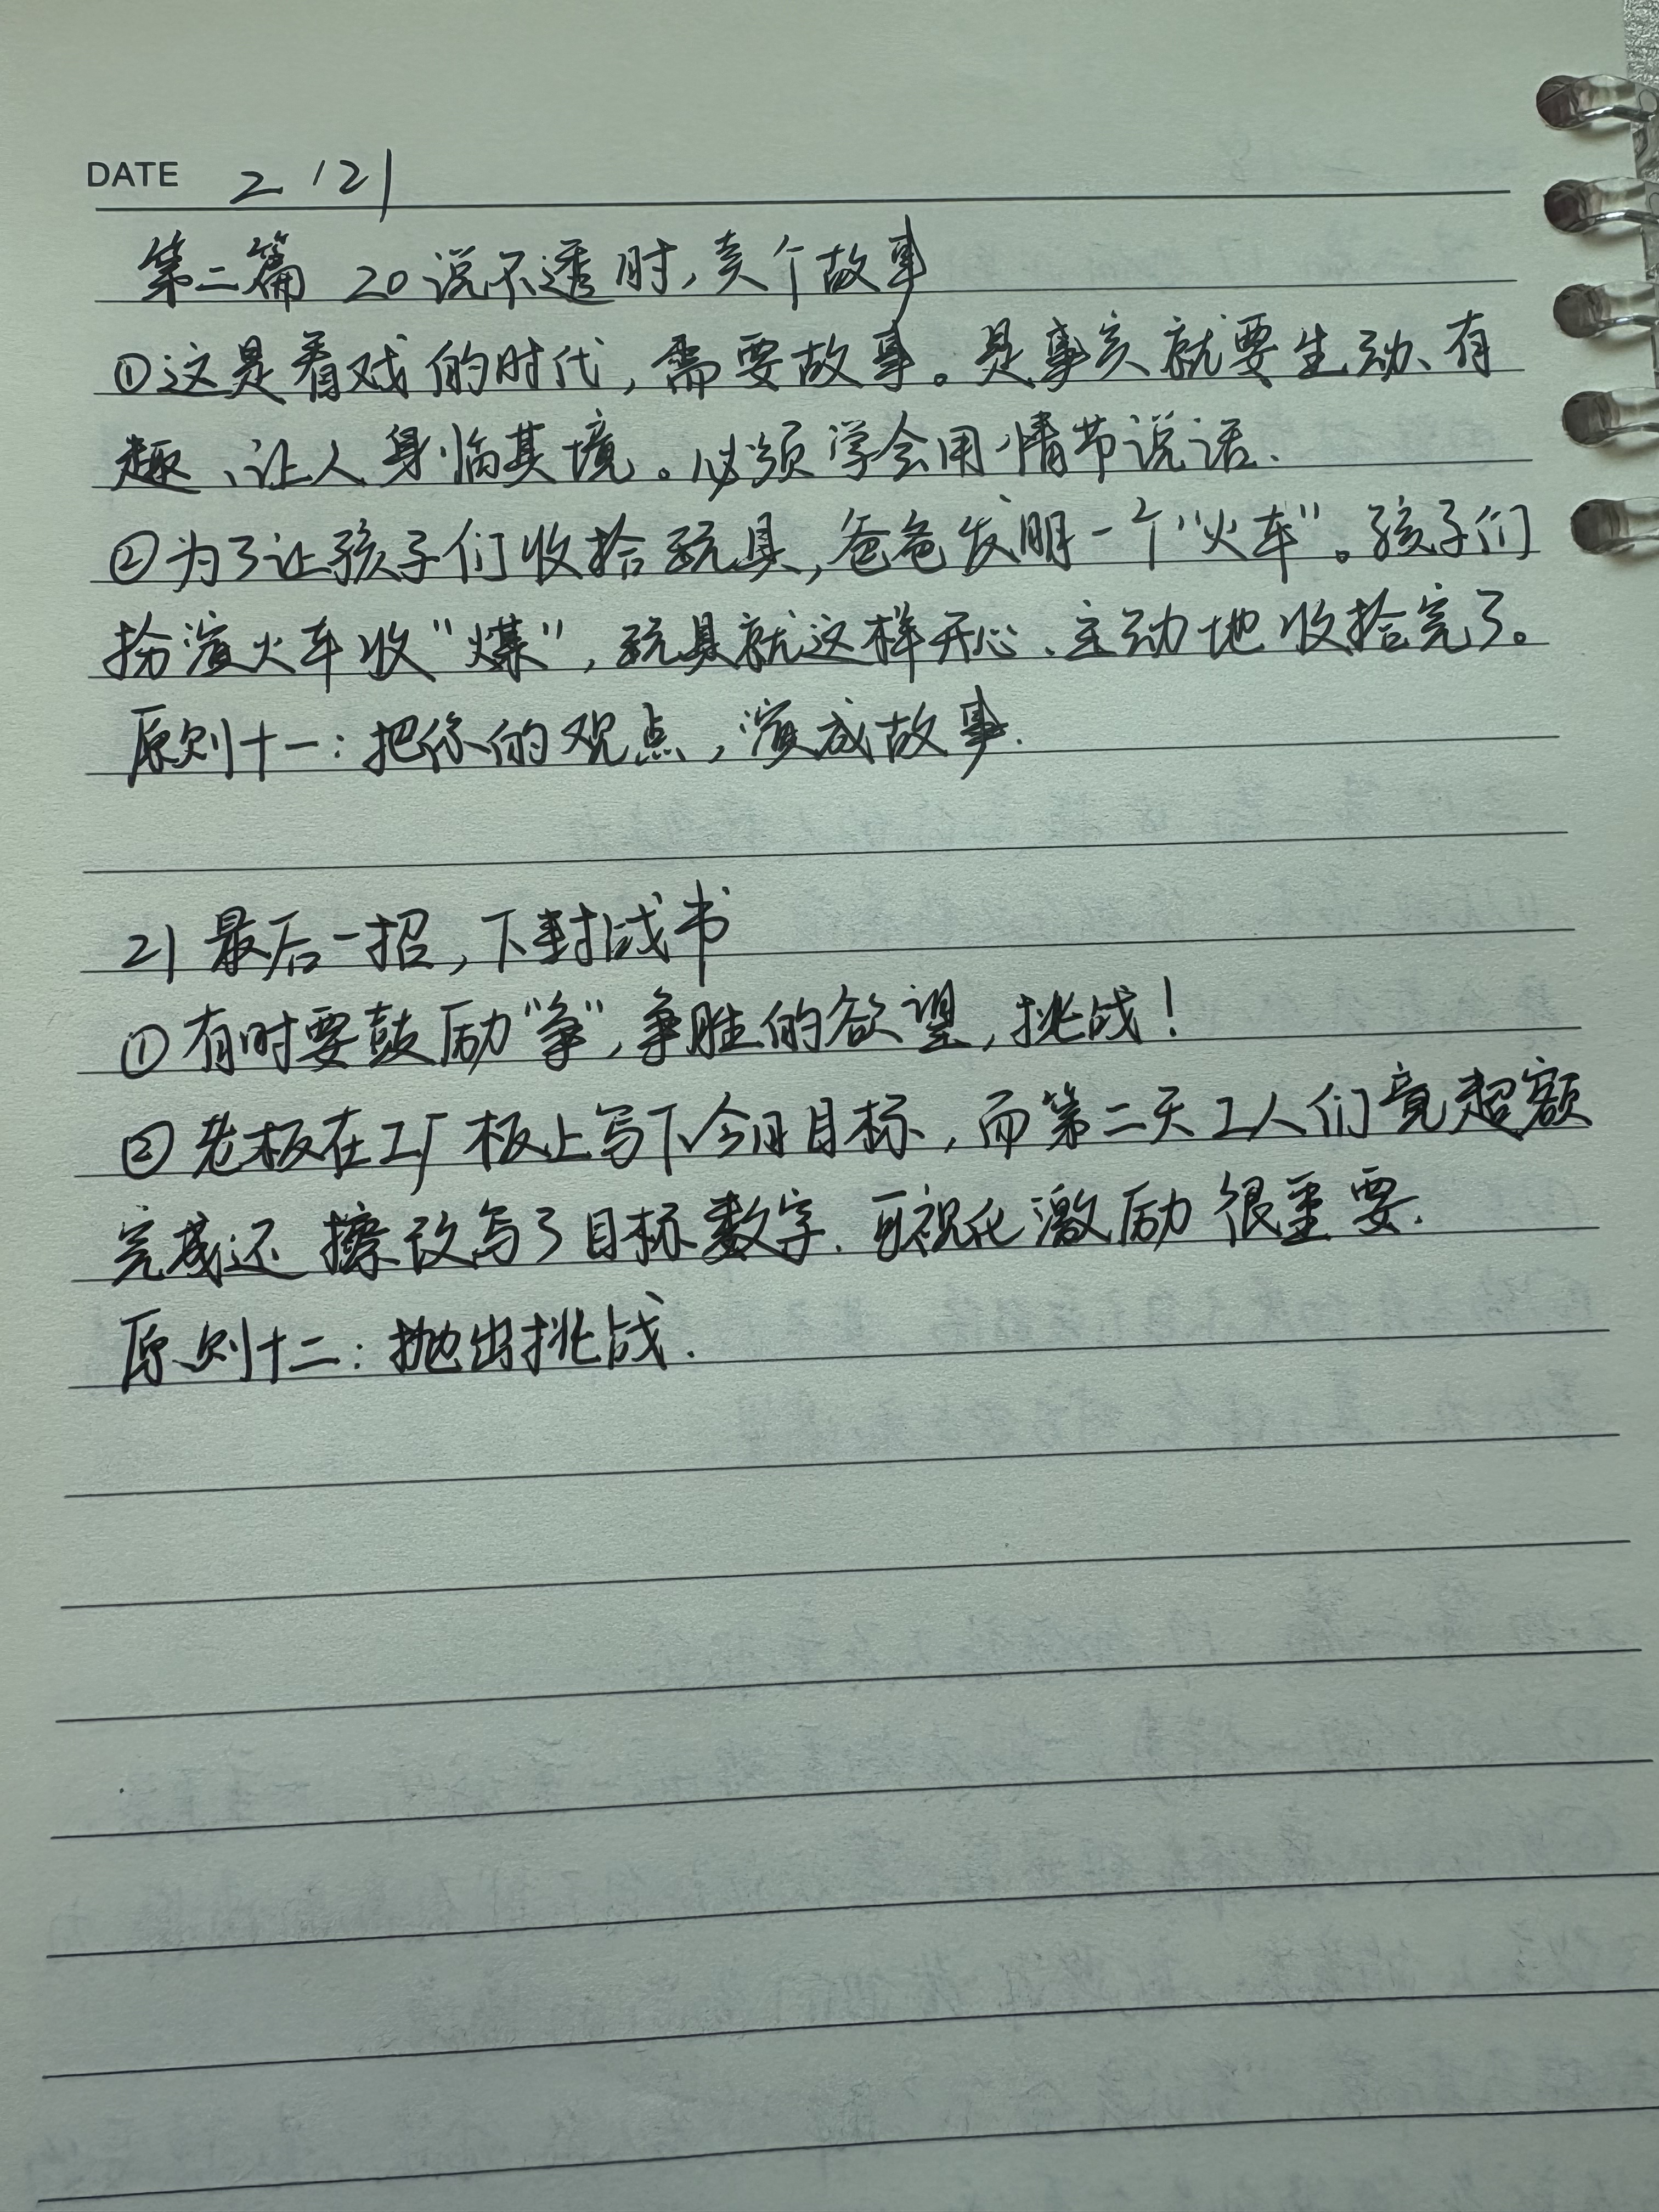 DATE 2/21
第二篇 20 说不透时,卖个故事
①这是看戏的时代,需要故事。是事实就要生动、有
趣、让人身临其境。必须学会用情节说话.
②为了让孩子们收拾玩具,爸爸发明一个“火车”。孩子们
扮演火车收“煤”,玩具就这样开心、主动地收拾完了。
原则十一:把你的观点,演成故事.
21 最后一招,下封战书
①有时要鼓励“争”,争胜的欲望,挑战!
②老板在工厂板上写下今日目标,而第二天工人们竟超额
完成还擦改写了目标数字.可视化激励很重要.
原则十二:抛出挑战.